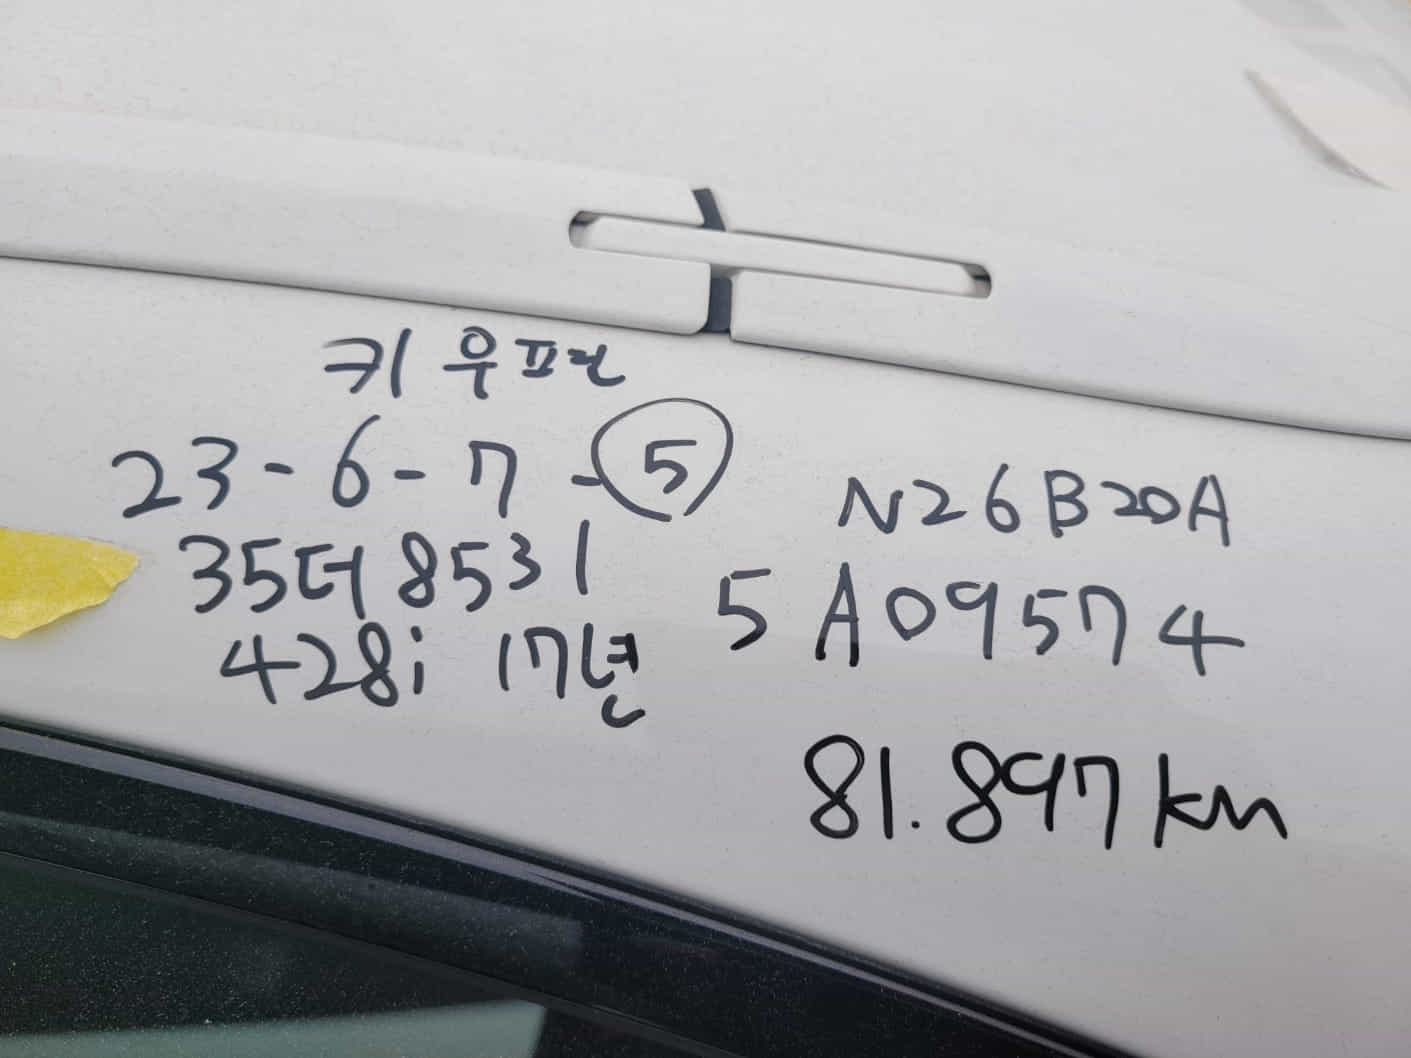 키 우프런
23-6-7-⑤
35더8531
428i 17년
N26B20A
5A09574
81.897km